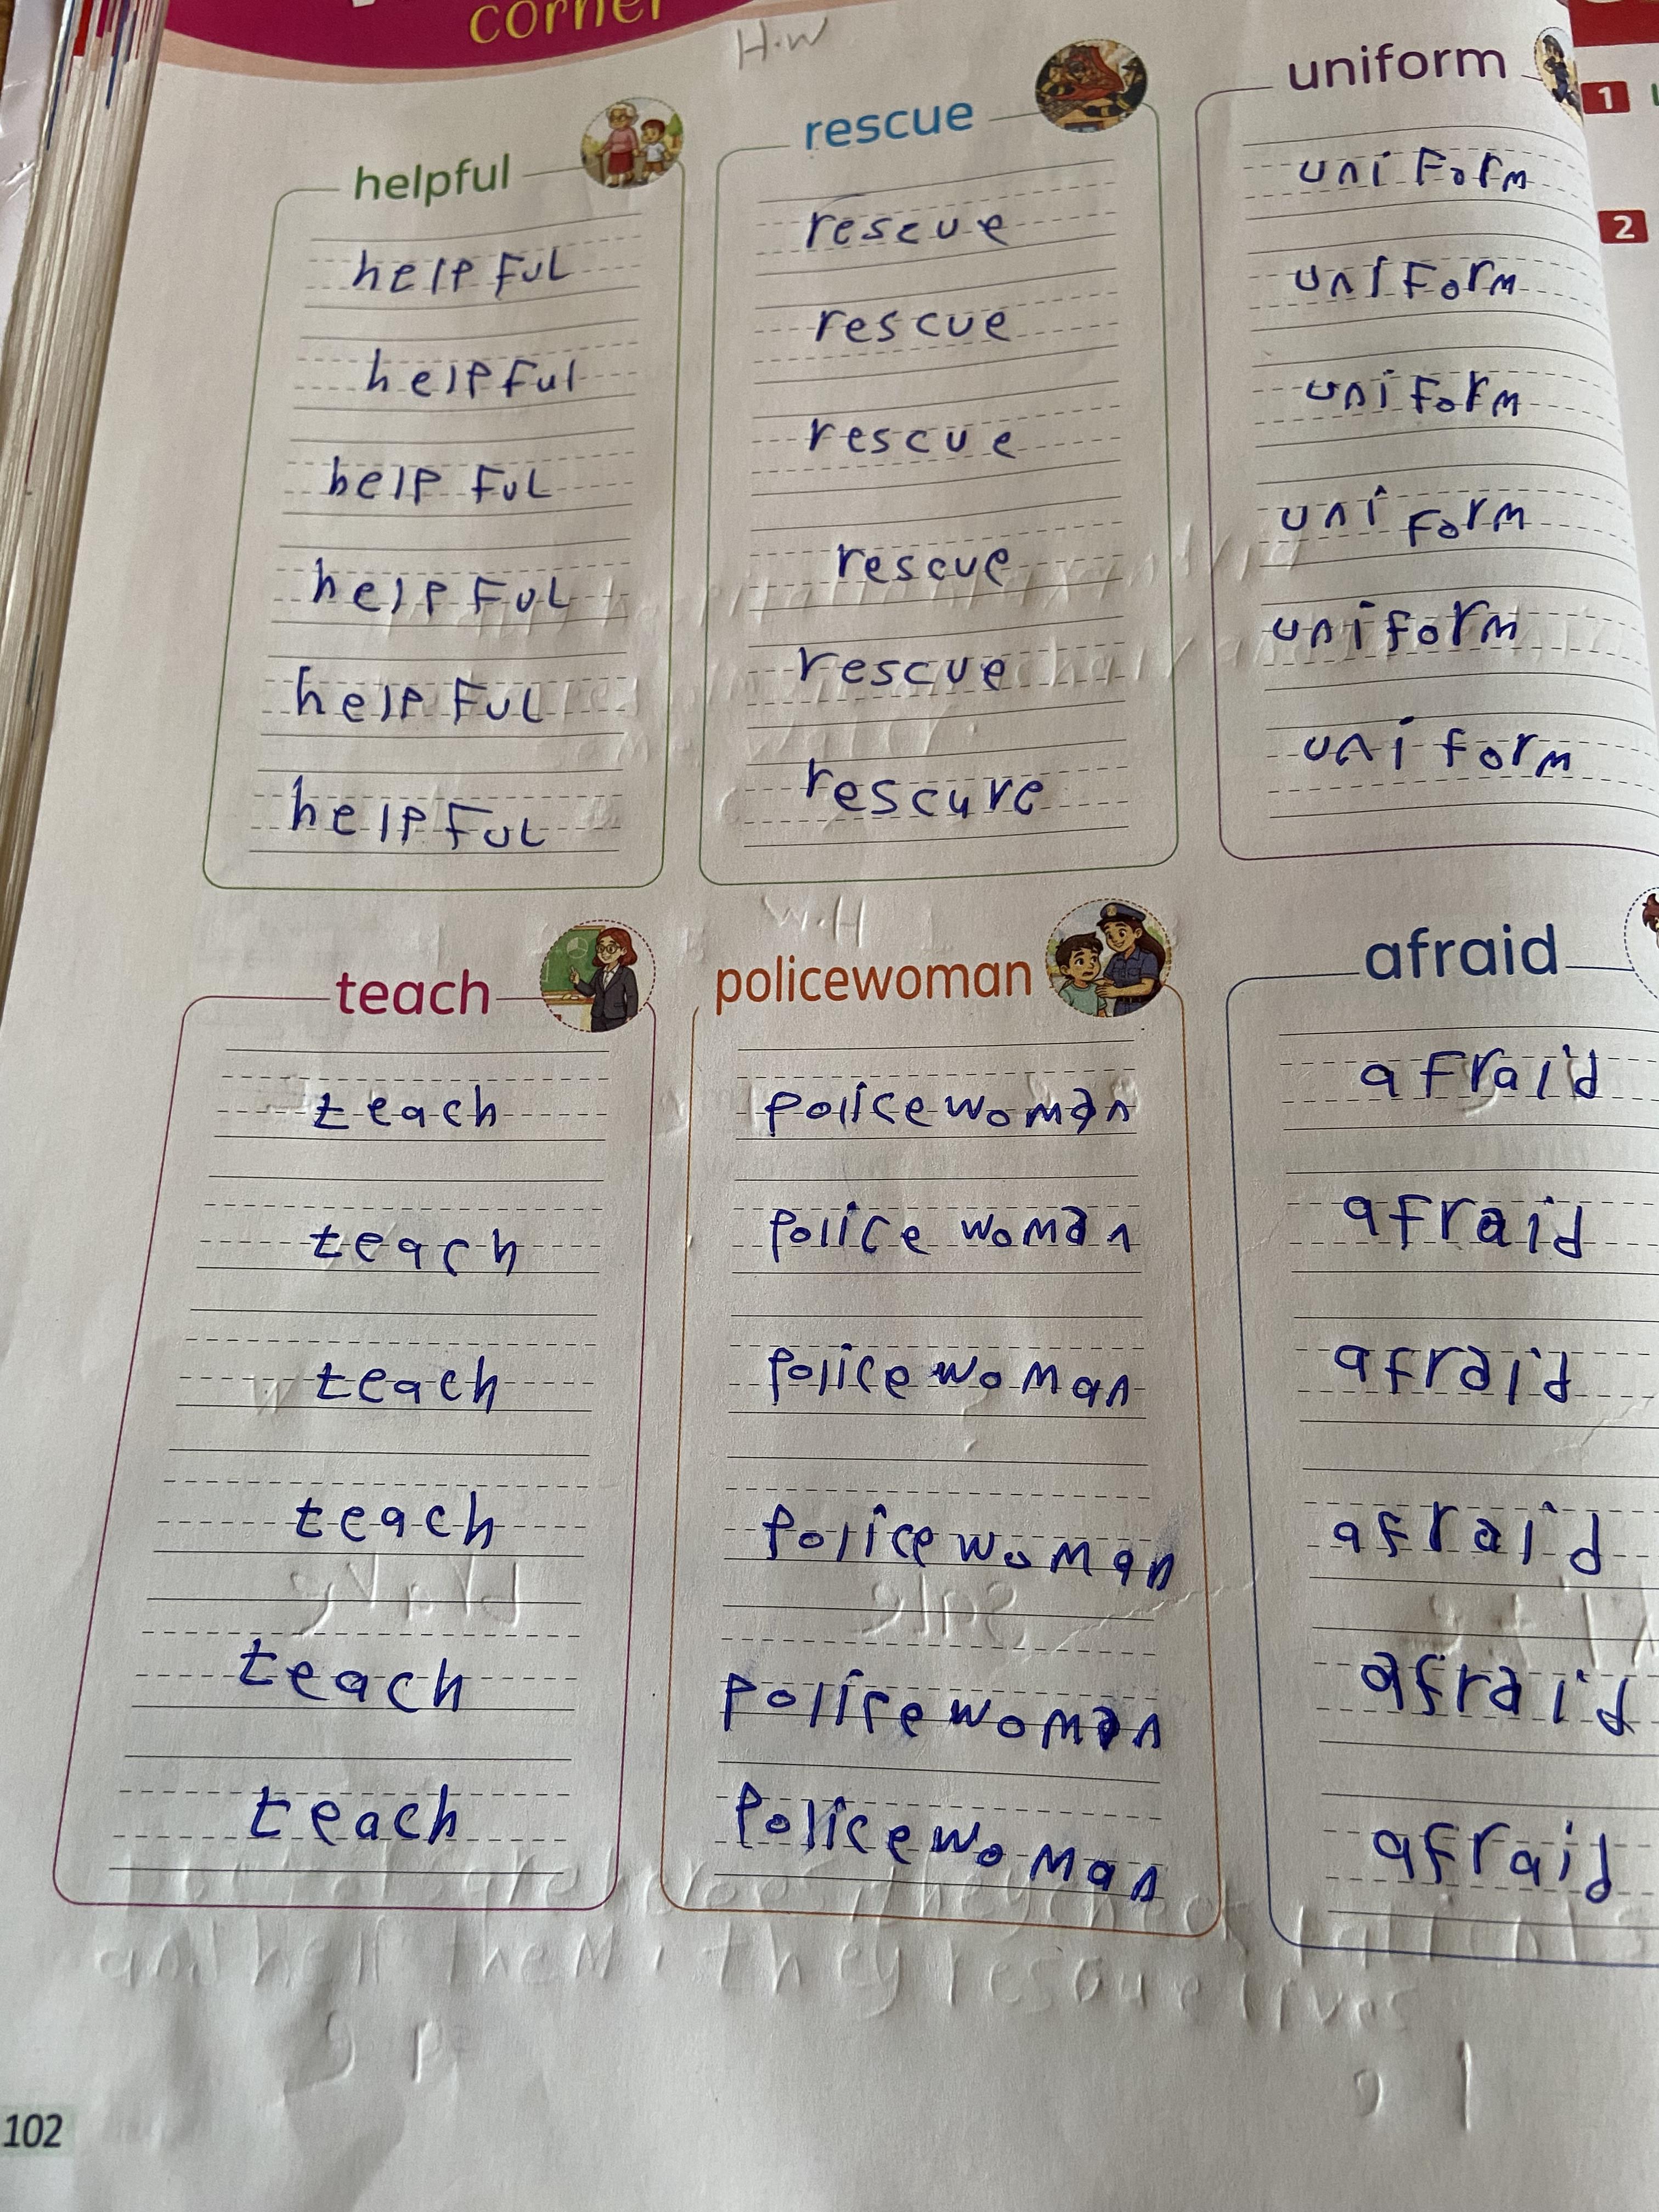 corner
H.W
helpful
help Ful
help Ful
help Ful
help Ful
help Ful
help Ful
rescue
rescue
rescue
rescue
rescue
rescue
rescure
uniform
uni Form
uni Form
uni Form
uni Form
uni form
uni form
1
2
teach
teach
teach
teach
teach
teach
teach
policewoman
policewoman
police woman
policewoman
policewoman
policewoman
policewoman
afraid
aFraid
afraid
afraid
afraid
afraid
afraid
102